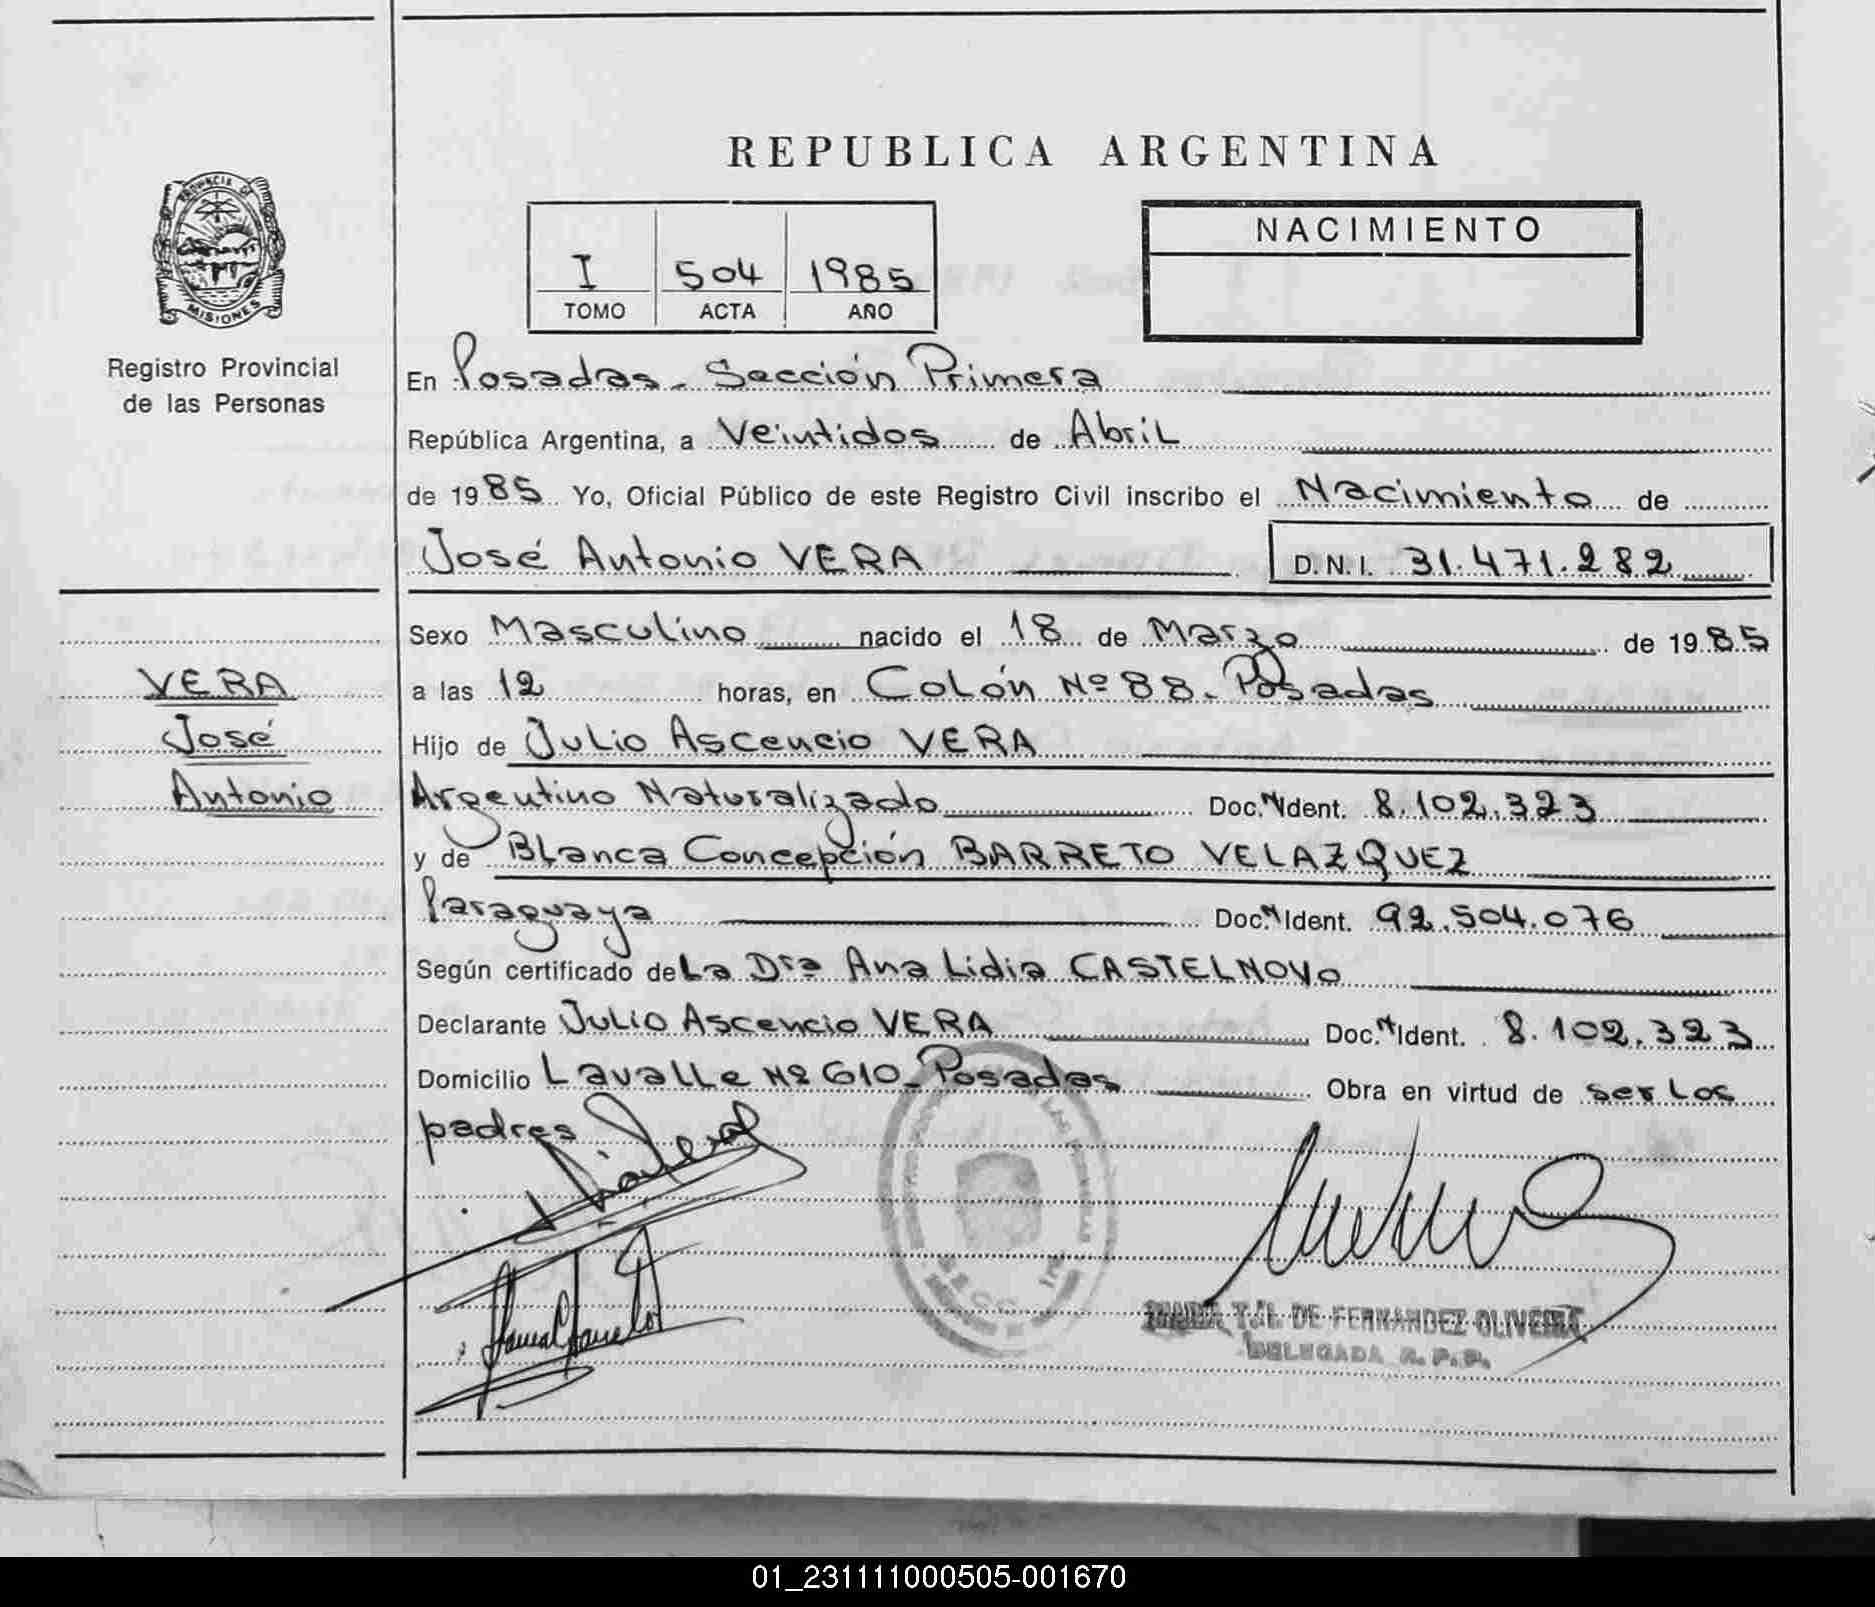 REPUBLICA ARGENTINA
PROVINCIA DE
MISIONES
Registro Provincial
de las Personas
I 504 1985
TOMO ACTA AÑO
NACIMIENTO
En Posadas - Sección Primera
República Argentina, a Veintidos de Abril
de 1985 Yo, Oficial Público de este Registro Civil inscribo el Nacimiento de
José Antonio VERA D.N.I. 31.471.282
Sexo Masculino nacido el 18 de Marzo de 1985
VERA
José
Antonio
a las 12 horas, en Colón Nº 88 - Posadas
Hijo de Julio Ascencio VERA
Argentino Naturalizado Doc. N Ident. 8.102.323
y de Blanca Concepción BARRETO VELAZQUEZ
Paraguaya Doc. N Ident. 92.504.076
Según certificado de La Dra Ana Lidia CASTELNOVO
Declarante Julio Ascencio VERA Doc. N Ident. 8.102.323
Domicilio Lavalle Nº 610 - Posadas Obra en virtud de ser los
padres
T. DE FERNANDEZ OLIVEIRA
DELEGADA R. P. P.
01_231111000505-001670